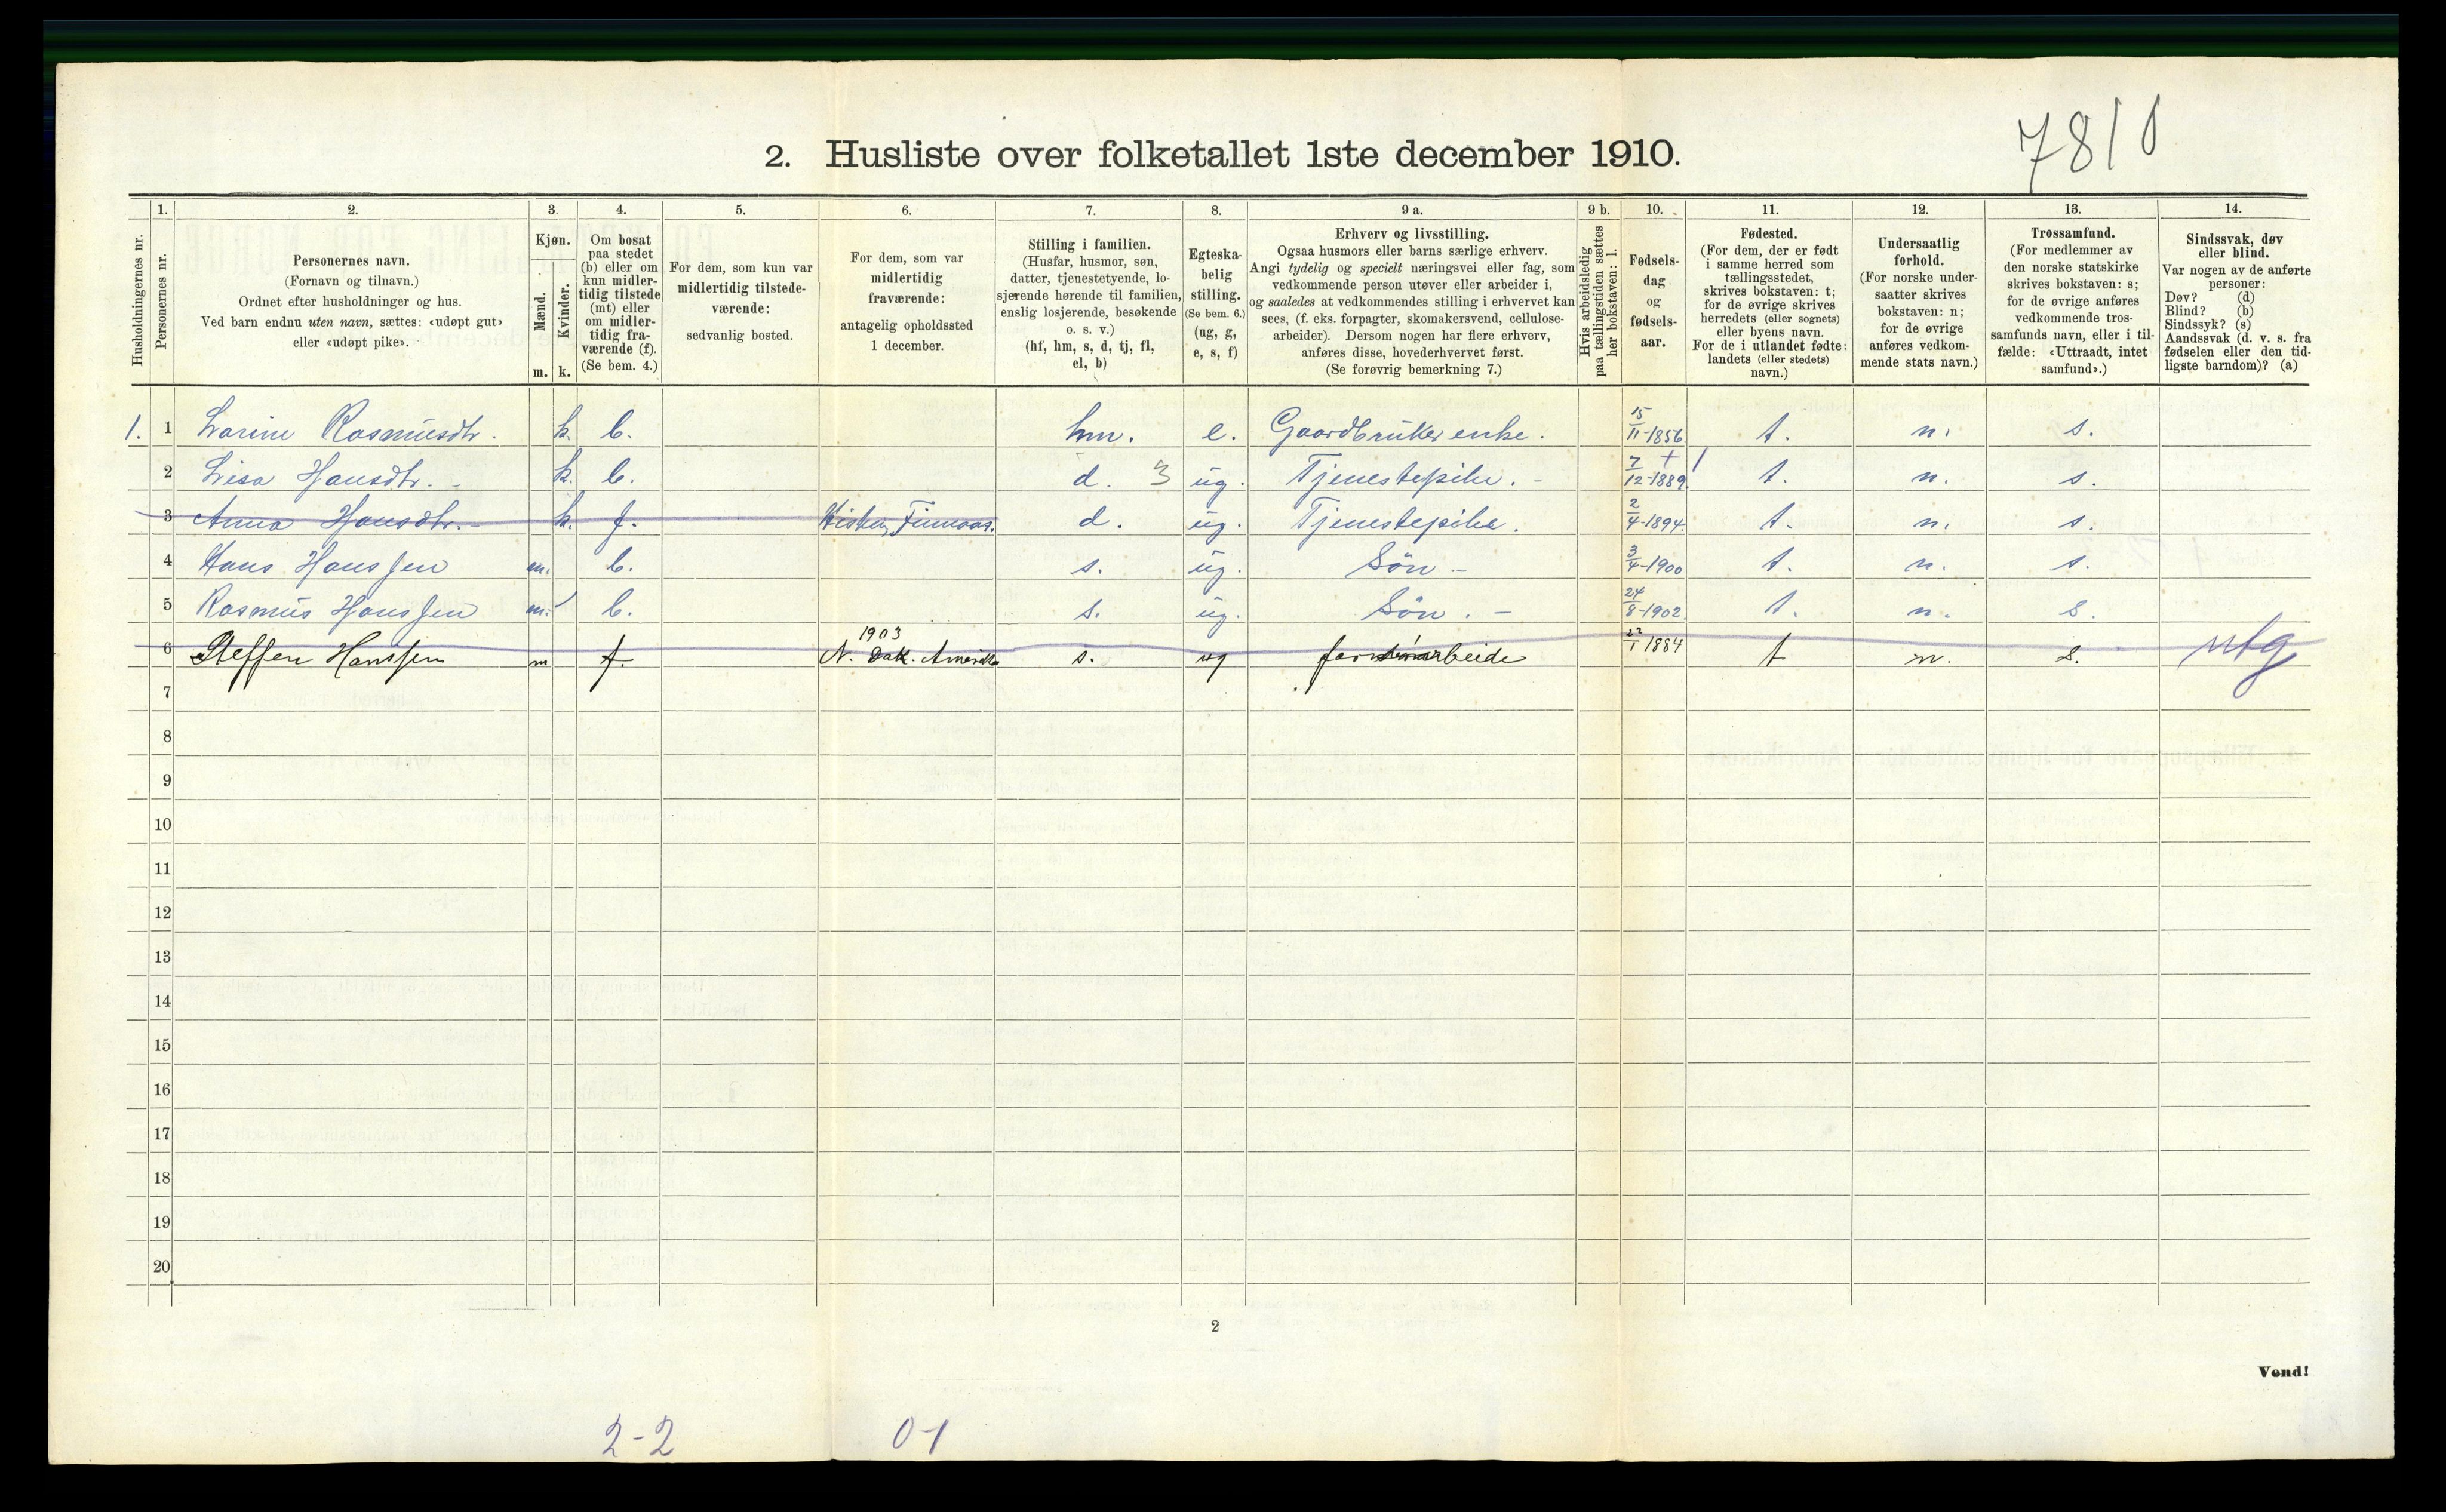 7810
2. Husliste over folketallet 1ste december 1910.
Husholdningernes nr.
1.
Personernes nr.
2.
Personernes navn.
(Fornavn og tilnavn.)
Ordnet efter husholdninger og hus.
Ved barn endnu uten navn, sættes: «udøpt gut»
eller «udøpt pike».
3.
Kjøn.
Mænd.
Kvinder.
m. k.
4.
Om bosat
paa stedet
(b) eller om
kun midler-
tidig tilstede
(mt) eller
om midler-
tidig fra-
værende (f).
(Se bem. 4.)
5.
For dem, som kun var
midlertidig tilstede-
værende:
sedvanlig bosted.
6.
For dem, som var
midlertidig
fraværende:
antagelig opholdssted
1 december.
7.
Stilling i familien.
(Husfar, husmor, søn,
datter, tjenestetyende, lo-
sjerende hørende til familien,
enslig losjerende, besøkende
o. s. v.)
(hf, hm, s, d, tj, fl,
el, b)
8.
Egteska-
belig
stilling.
(Se bem. 6.)
(ug, g,
e, s, f)
9 a.
Erhverv og livsstilling.
Ogsaa husmors eller barns særlige erhverv.
Angi tydelig og specielt næringsvei eller fag, som
vedkommende person utøver eller arbeider i,
og saaledes at vedkommendes stilling i erhvervet kan
sees, (f. eks. forpagter, skomakersvend, cellulose-
arbeider). Dersom nogen har flere erhverv,
anføres disse, hovederhvervet først.
(Se forøvrig bemerkning 7.)
9 b.
Hvis arbeidsledig
paa tællingstiden sættes
her bokstaven: l.
10.
Fødsels-
dag
og
fødsels-
aar.
11.
Fødested.
(For dem, der er født
i samme herred som
tællingsstedet,
skrives bokstaven: t;
for de øvrige skrives
herredets (eller sognets)
eller byens navn.
For de i utlandet fødte:
landets (eller stedets)
navn.)
12.
Undersaatlig
forhold.
(For norske under-
saatter skrives
bokstaven: n;
for de øvrige
anføres vedkom-
mende stats navn.)
13.
Trossamfund.
(For medlemmer av
den norske statskirke
skrives bokstaven: s;
for de øvrige anføres
vedkommende tros-
samfunds navn, eller i til-
fælde: «Uttraadt, intet
samfund».)
14.
Sindssvak, døv
eller blind.
Var nogen av de anførte
personer:
Døv? (d)
Blind? (b)
Sindssyk? (s)
Aandssvak (d. v. s. fra
fødselen eller den tid-
ligste barndom)? (a)
1. 1 Larine Rasmusdtr. k. b. hm. e. Gaardbruker enke. 15/11-1856 t. n. s.
2 Lisa Hansdtr. - k. b. d. 3 ug. Tjenestepike. - 7/12-1889 t. n. s.
3 Anna Hansdtr. - k. f. Finnaas. d. ug. Tjenestepike. 2/4-1894 t. n. s.
4 Hans Hanssen m. b. s. ug. Sön - 3/4-1900 t. n. s.
5 Rasmus Hanssen m. b. s. ug. Sön. - 24/8-1902 t. n. s.
6 Steffen Hanssen m f. 1903 N. Dak. Amerika s. ug 1884 t n. s. utg
7
8
9
10
11
12
13
14
15
16
17
18
19
20
2
Vend!
2-2 0-1